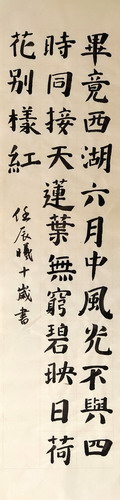 畢竟西湖六月中風光不與四
時同接天蓮葉無窮碧映日荷
花别樣紅
任辰曦十歲書